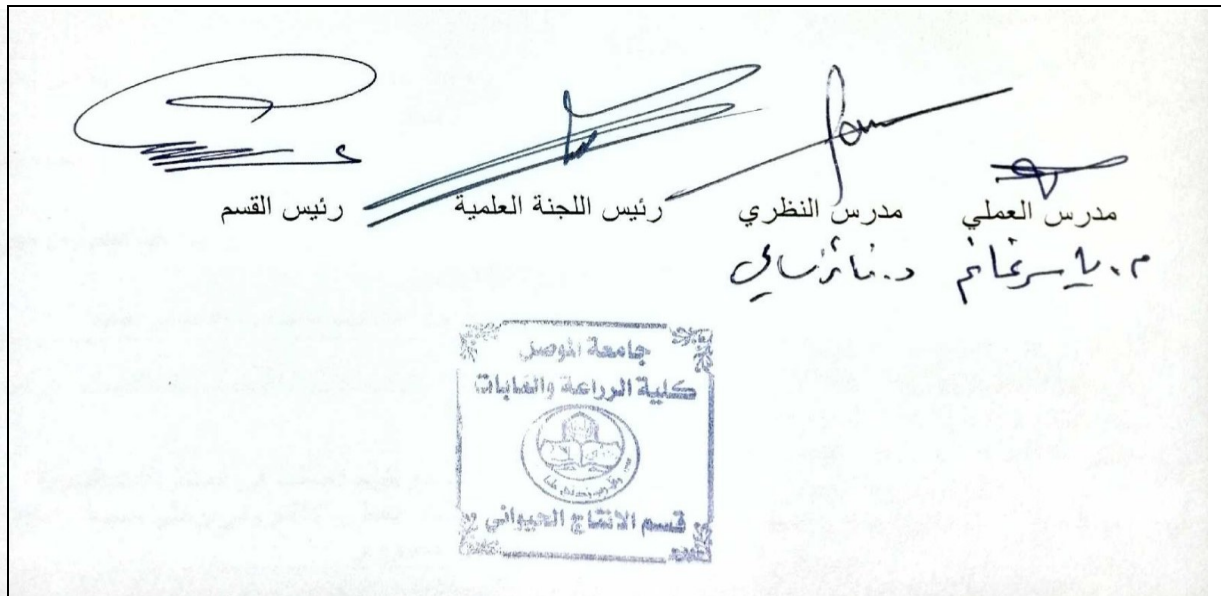 مدرس العملي مدرس النظري رئيس اللجنة العلمية رئيس القسم
م. ياسر غانم د. فائز سامي
جامعة الموصل
كلية الزراعة والغابات
قسم الانتاج الحيواني